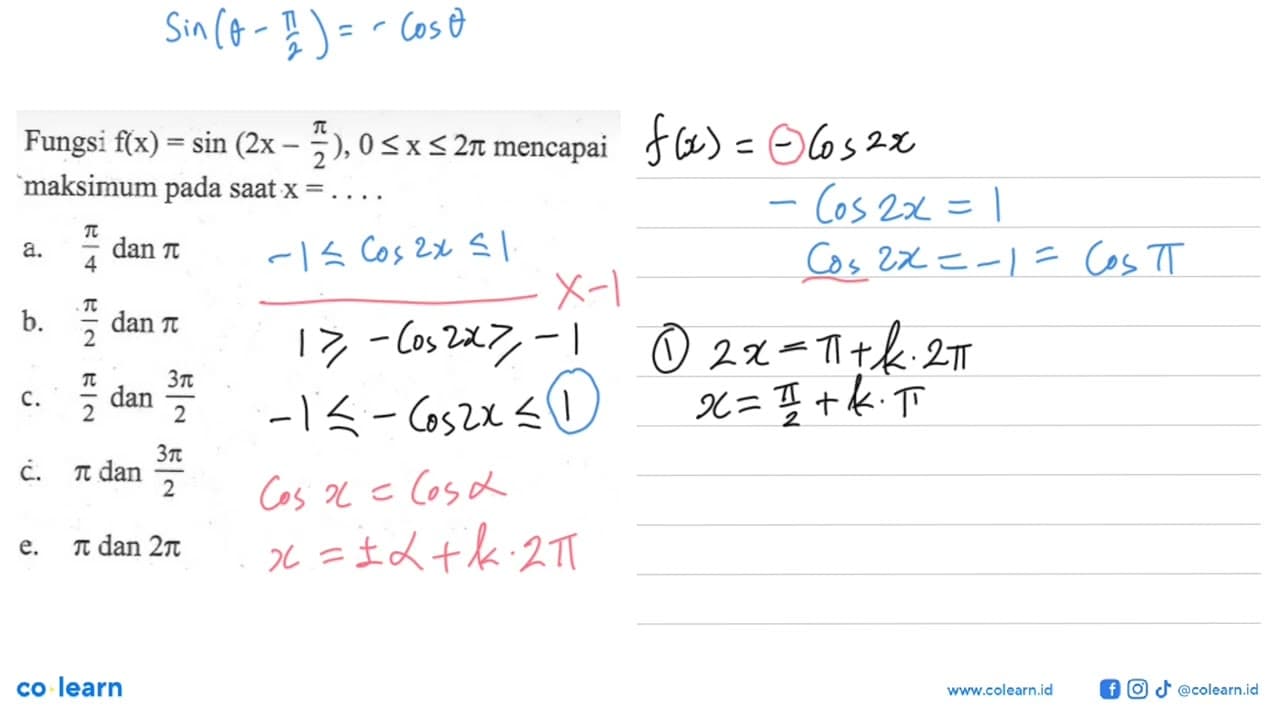 Sin(θ - π/2) = - Cos θ
Fungsi f(x) = sin (2x - π/2), 0 ≤ x ≤ 2π mencapai
maksimum pada saat x = . . . .
a. π/4 dan π
b. π/2 dan π
c. π/2 dan 3π/2
c. π dan 3π/2
e. π dan 2π
-1 ≤ Cos 2x ≤ 1
x-1
1 ≥ - Cos 2x ≥ -1
-1 ≤ - Cos 2x ≤ 1
Cos x = Cos α
x = ±α + k·2π
f(x) = - Cos 2x
- Cos 2x = 1
Cos 2x = -1 = Cos π
① 2x = π + k·2π
x = π/2 + k·π
co learn
www.colearn.id
@colearn.id